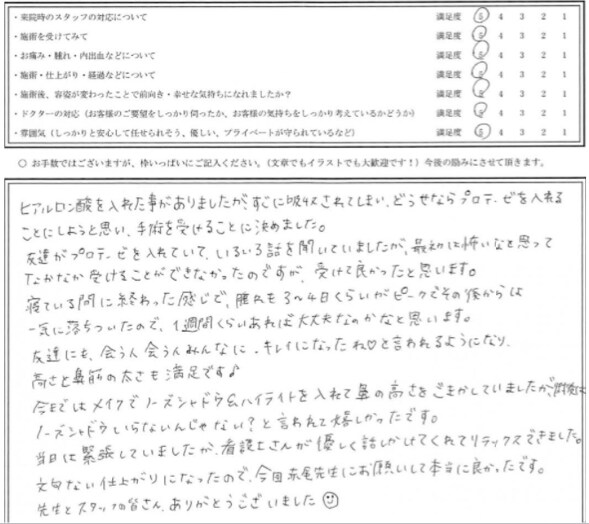 ・来院時のスタッフの対応について 満足度 5 4 3 2 1
・施術を受けてみて 満足度 5 4 3 2 1
・お痛み・腫れ・内出血などについて 満足度 5 4 3 2 1
・施術・仕上がり・経過などについて 満足度 5 4 3 2 1
・施術後、容姿が変わったことで前向き・幸せな気持ちになれましたか? 満足度 5 4 3 2 1
・ドクターの対応(お客様のご要望をしっかり伺ったか、お客様の気持ちをしっかり考えているかどうか) 満足度 5 4 3 2 1
・雰囲気(しっかりと安心して任せられそう、優しい、プライベートが守られているなど) 満足度 5 4 3 2 1
○ お手数ではございますが、枠いっぱいにご記入ください。(文章でもイラストでも大歓迎です!)今後の励みにさせて頂きます。
ヒアルロン酸を入れた事がありましたが、すぐに吸収されてしまい、どうせならプロテーゼを入れる
ことにしようと思い、手術を受けることに決めました。
友達がプロテーゼを入れていて、いろいろ話を聞いていましたが、最初は怖いなと思って
なかなか受けることができなかったのですが、受けて良かったと思います。
寝ている間に終わった感じで、腫れも3〜4日くらいがピークでその後からは
一気に落ちついたので、1週間くらいあれば大丈夫なのかなと思います。
友達にも、会う人会う人みんなに、キレイになったね♡と言われるようになり、
高さと鼻筋の太さも満足です♪
今まではメイクでノーズシャドウ&ハイライトを入れて鼻の高さをごまかしていましたが、術後は
ノーズシャドウいらないんじゃない?と言われて嬉しかったです。
当日は緊張していましたが、看護士さんが優しく話しかけてくれてリラックスできました。
文句ない仕上がりになったので、今回赤尾先生にお願いして本当に良かったです。
先生とスタッフの皆さん、ありがとうございました☺